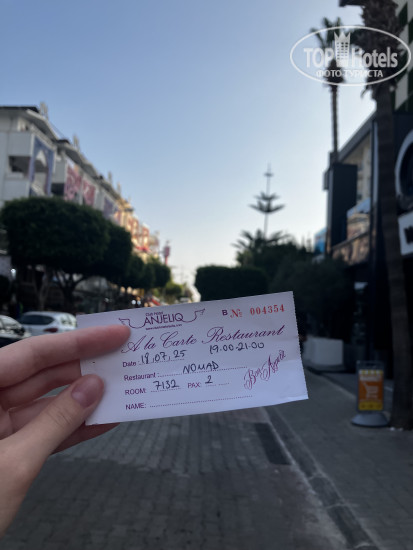 TOPHotels
ФОТО ТУРИСТА
ANJELIQ
B No 004354
A la Carte Restaurant
Date : 18.07.25 19.00-21.00
Restaurant : NOMAD
ROOM: 7132 PAX: 2
NAME:
Bon Appetit